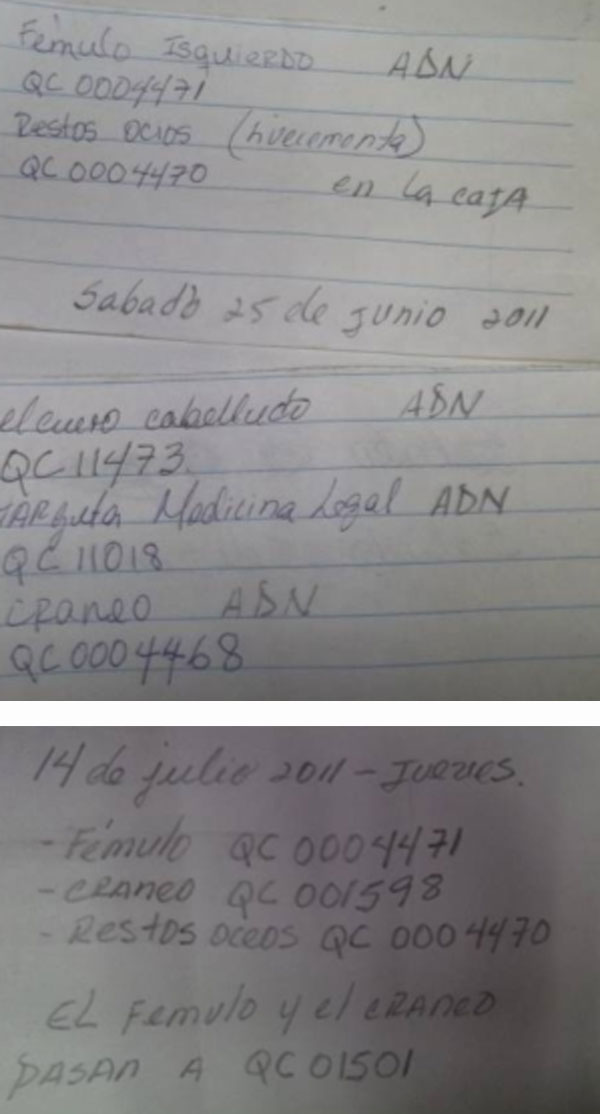 Fémulo Isquierdo ADN
QC 0004471
Restos ocios (huerementa)
QC 0004470 en la caja
Sabado 25 de junio 2011
el cuero cabelludo ADN
QC 11473.
TARguta Medicina Legal ADN
QC 11018
CRaneo ADN
QC 0004468
14 de julio 2011 - Jueves.
- Fémulo QC 0004471
- CRAneo QC 001598
- Restos oceos QC 0004470
EL Femulo y el CRANEO
PASAN A QC 01501